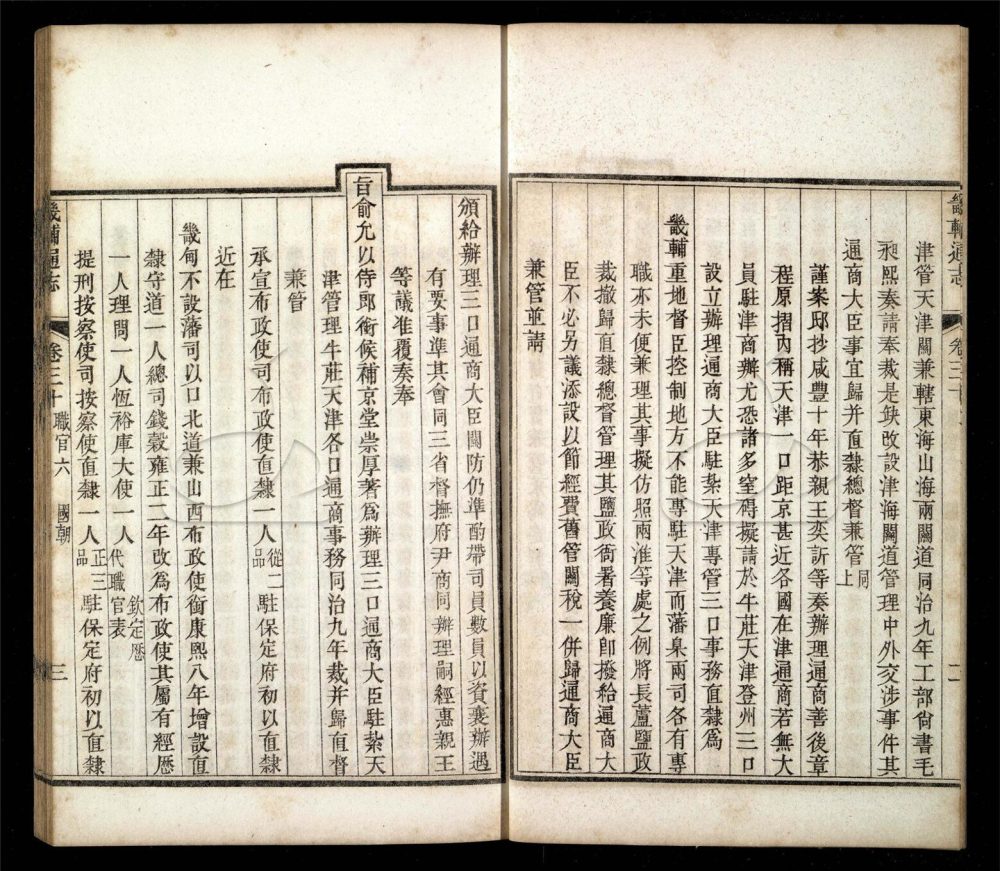 畿輔通志 卷三十 二
津管天津關兼轄東海山海兩關道同治九年工部尙書毛
昶熙奏請奉裁是缺改設津海關道管理中外交涉事件其
通商大臣事宜歸并直隸總督兼管同上
謹案邸抄咸豐十年恭親王奕訢等奏辦理通商善後章
程原摺內稱天津一口距京甚近各國在津通商若無大
員駐津商辦尤恐諸多窒碍擬請於牛莊天津登州三口
設立辦理通商大臣駐紮天津專管三口事務直隸爲
畿輔重地督臣控制地方不能專駐天津而藩臬兩司各有專
職亦未便兼理其事擬仿照兩淮等處之例將長蘆鹽政
裁撤歸直隸總督管理其鹽政衙署養廉卽撥給通商大
臣不必另議添設以節經費舊管關稅一併歸通商大臣
兼管並請
頒給辦理三口通商大臣關防仍準酌帶司員數員以資襄辦遇
有要事準其會同三省督撫府尹商同辦理嗣經惠親王
等議准覆奏奉
旨俞允以侍郎銜候補京堂崇厚著爲辦理三口通商大臣駐紮天
津管理牛莊天津各口通商事務同治九年裁并歸直督
兼管
承宣布政使司布政使直隸一人從二品駐保定府初以直隸
近在
畿甸不設藩司以口北道兼山西布政使銜康熙八年增設直
隸守道一人總司錢穀雍正二年改爲布政使其屬有經歷
一人理問一人恆裕庫大使一人欽定歷代職官表
提刑按察使司按察使直隸一人正三品駐保定府初以直隸
畿輔通志 卷三十 職官六 國朝 三